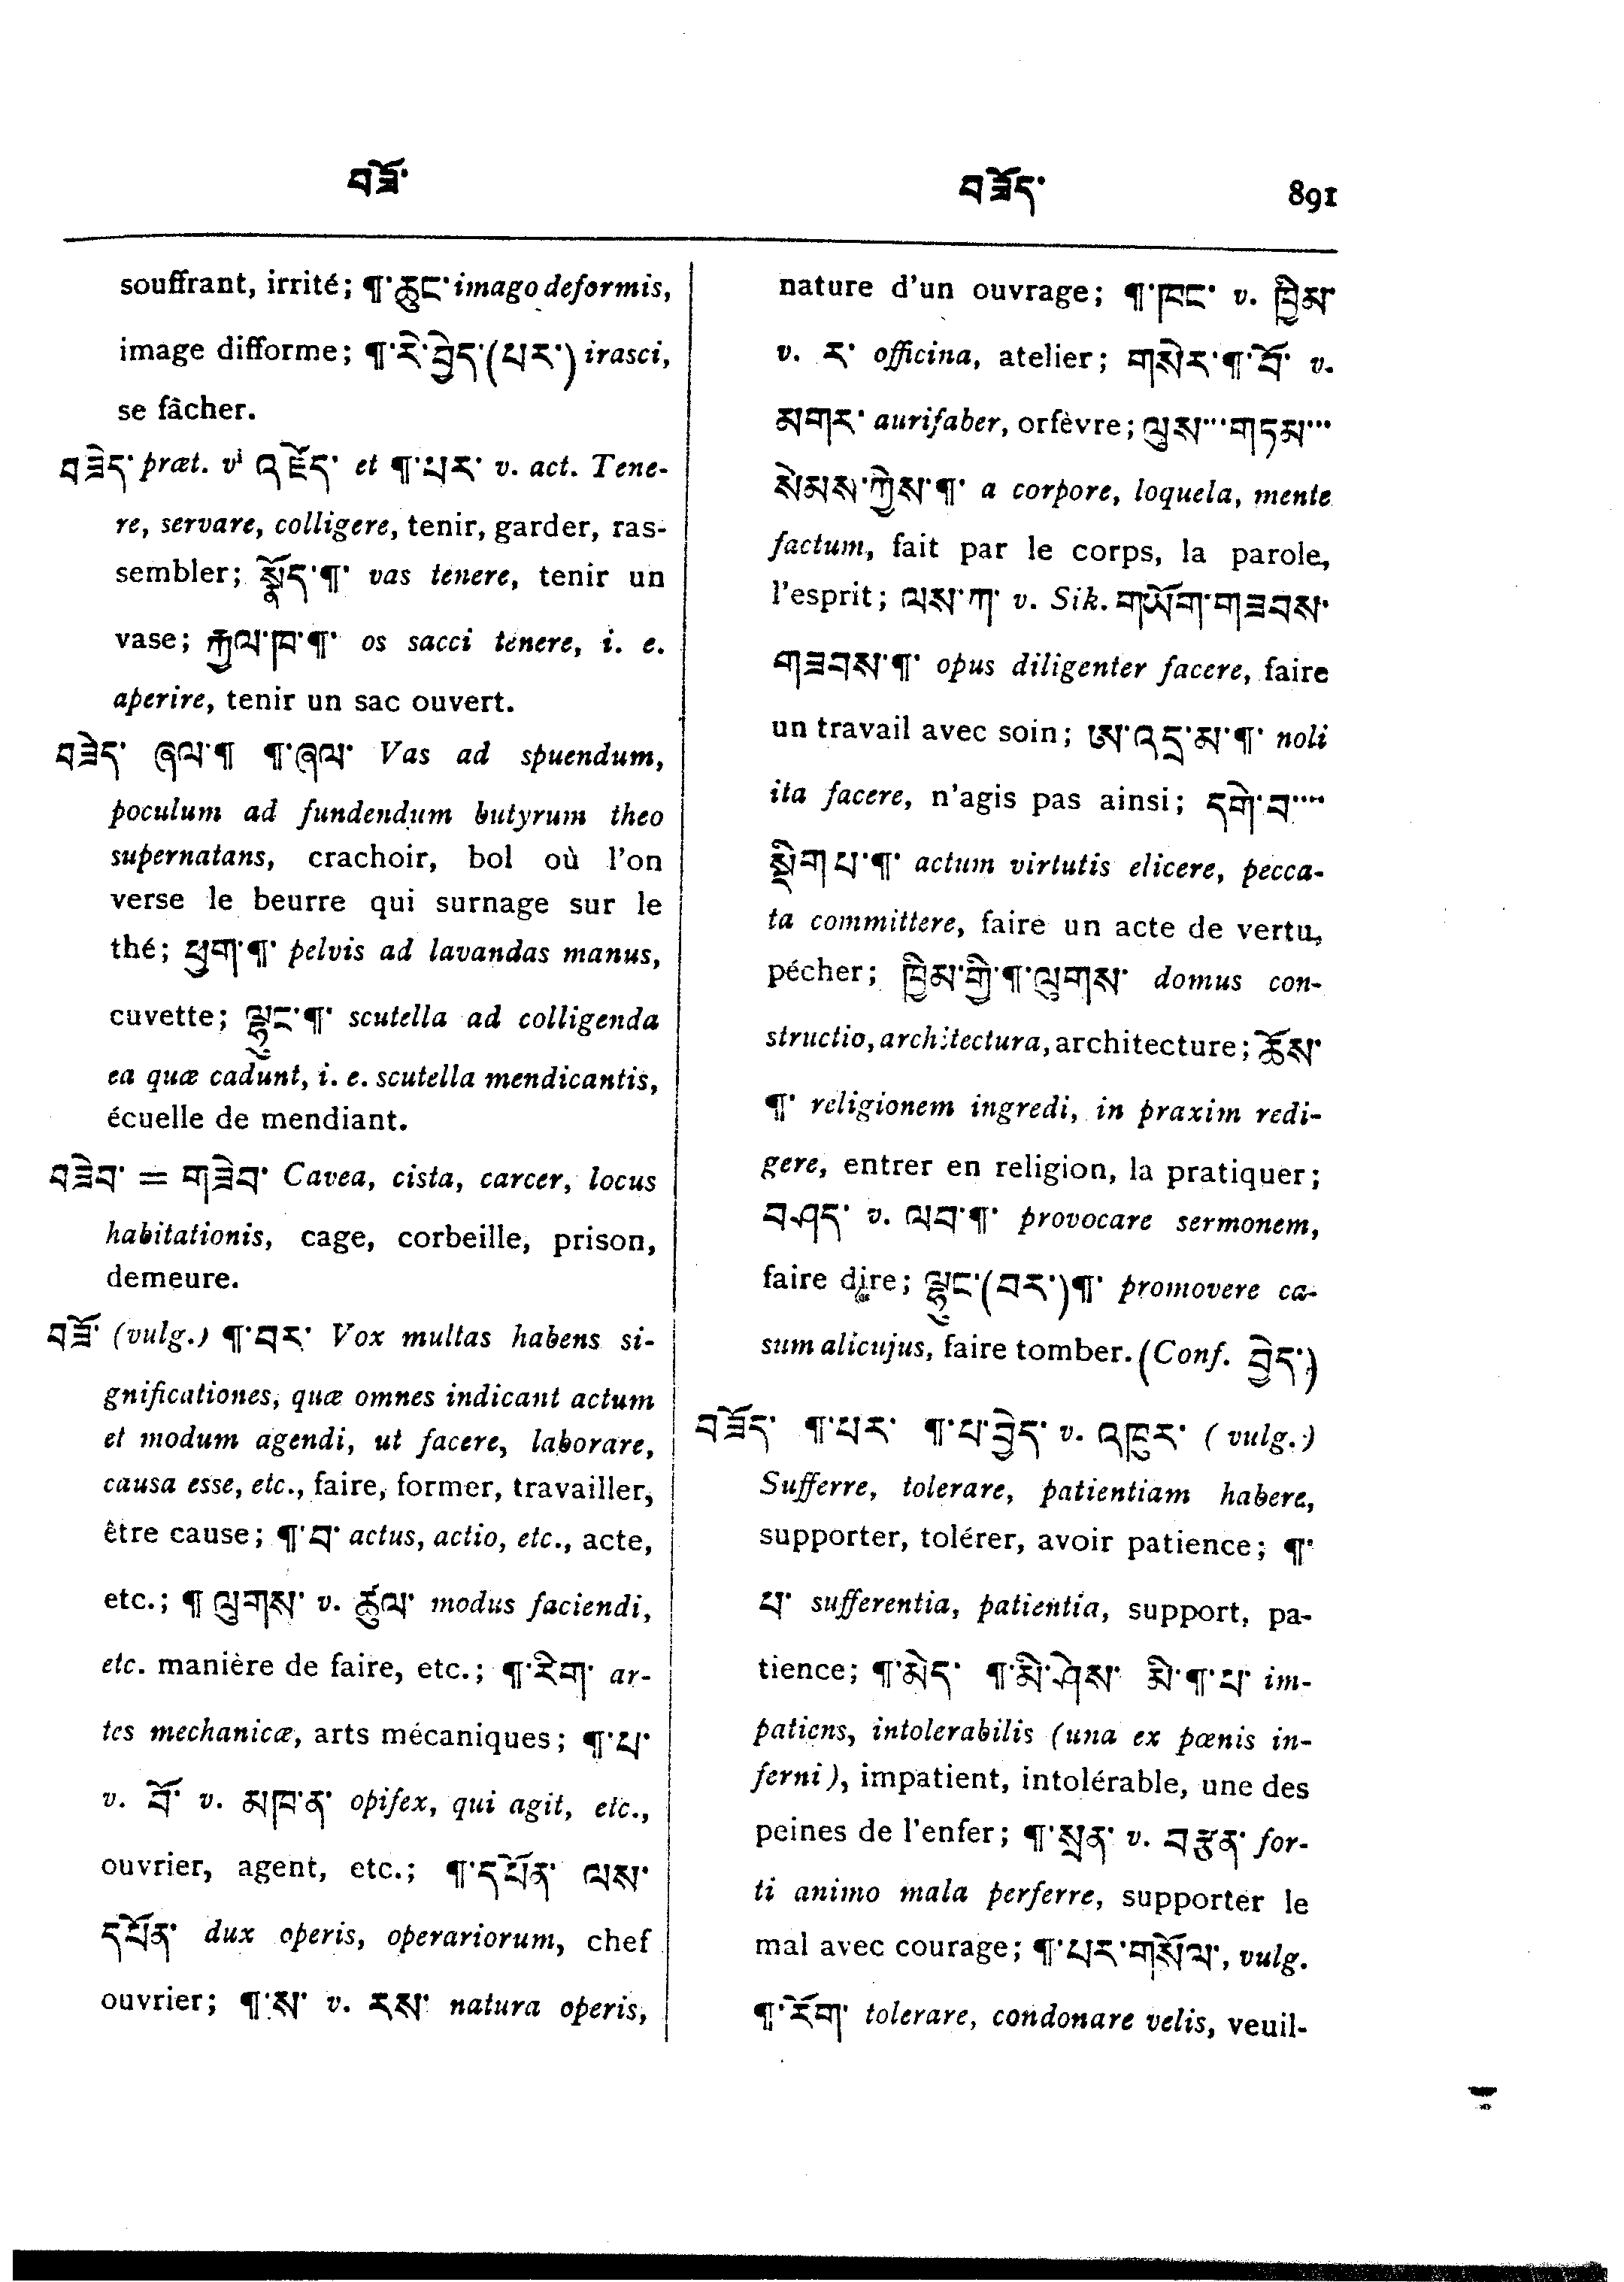 བཟོ་
བཟོད་ 891
souffrant, irrité; ¶་ཆུང་ imago deformis,
image difforme; ¶་རེ་བྱེད་(པར་) irasci,
se fâcher.
བཟེད་ præt. vi འཛོད་ et ¶་པར་ v. act. Tene-
re, servare, colligere, tenir, garder, ras-
sembler; སྣོད་¶་ vas tenere, tenir un
vase; རྐྱལ་ཁ་¶་ os sacci tenere, i. e.
aperire, tenir un sac ouvert.
བཟེད་ ཞལ་¶ ¶་ཞལ་ Vas ad spuendum,
poculum ad fundendum butyrum theo
supernatans, crachoir, bol où l'on
verse le beurre qui surnage sur le
thé; ཕྱག་¶་ pelvis ad lavandas manus,
cuvette; ལྷུང་¶་ scutella ad colligenda
ea quæ cadunt, i. e. scutella mendicantis,
écuelle de mendiant.
བཟེབ་ = གཟེབ་ Cavea, cista, carcer, locus
habitationis, cage, corbeille, prison,
demeure.
བཟོ་ (vulg.) ¶་བར་ Vox multas habens si-
gnificationes, quæ omnes indicant actum
et modum agendi, ut facere, laborare,
causa esse, etc., faire, former, travailler,
être cause; ¶་བ་ actus, actio, etc., acte,
etc.; ¶ ལུགས་ v. ཚུལ་ modus faciendi,
etc. manière de faire, etc.; ¶་རིག་ ar-
tes mechanicæ, arts mécaniques; ¶་པ་
v. བོ་ v. མཁན་ opifex, qui agit, etc.,
ouvrier, agent, etc.; ¶་དཔོན་ ལས་
དཔོན་ dux operis, operariorum, chef
ouvrier; ¶་ས་ v. དས་ natura operis,
nature d'un ouvrage; ¶་ཁང་ v. ཁྱིམ་
v. ར་ officina, atelier; གསེར་¶་བོ་ v.
མགར་ aurifaber, orfèvre; ལུས་··· གཏམ་···
སེམས་ཀྱིས་¶་ a corpore, loquela, mente
factum, fait par le corps, la parole,
l'esprit; ལས་ཀ་ v. Sik. གཡོག་གཟབས་
གཟབས་¶་ opus diligenter facere, faire
un travail avec soin; ཨ་འདྲ་མ་¶་ noli
ita facere, n'agis pas ainsi; དགེ་བ་····
སྡིག པ་¶་ actum virtutis elicere, pecca-
ta committere, faire un acte de vertu,
pécher; ཁྱིམ་གྱི་¶་ལུགས་ domus con-
structio, architectura, architecture; ཆོས་
¶་ religionem ingredi, in praxim redi-
gere, entrer en religion, la pratiquer;
བཤད་ v. ལབ་¶་ provocare sermonem,
faire dire; ལྷུང་(བར་)¶་ promovere ca-
sum alicujus, faire tomber. (Conf. བྱེད་)
བཟོད་ ¶་པར་ ¶་པ་བྱེད་ v. འཁུར་ (vulg.)
Sufferre, tolerare, patientiam habere,
supporter, tolérer, avoir patience; ¶་
པ་ sufferentia, patientia, support, pa-
tience; ¶་མེད་ ¶་མི་ཤེས་ མི་¶་པ་ im-
patiens, intolerabilis (una ex pœnis in-
ferni), impatient, intolérable, une des
peines de l'enfer; ¶་སྲན་ v. བརྩན་ for-
ti animo mala perferre, supporter le
mal avec courage; ¶་པར་གསོལ་, vulg.
¶་རོག་ tolerare, condonare velis, veuil-